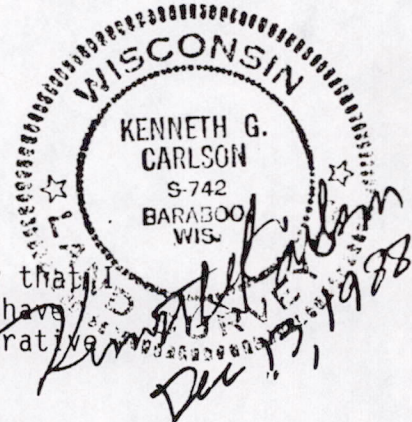 WISCONSIN
KENNETH G.
CARLSON
S-742
BARABOO
WIS.
LAND SURVEY
that I
have
rative
Kenneth G. Carlson
Dec 13, 1988